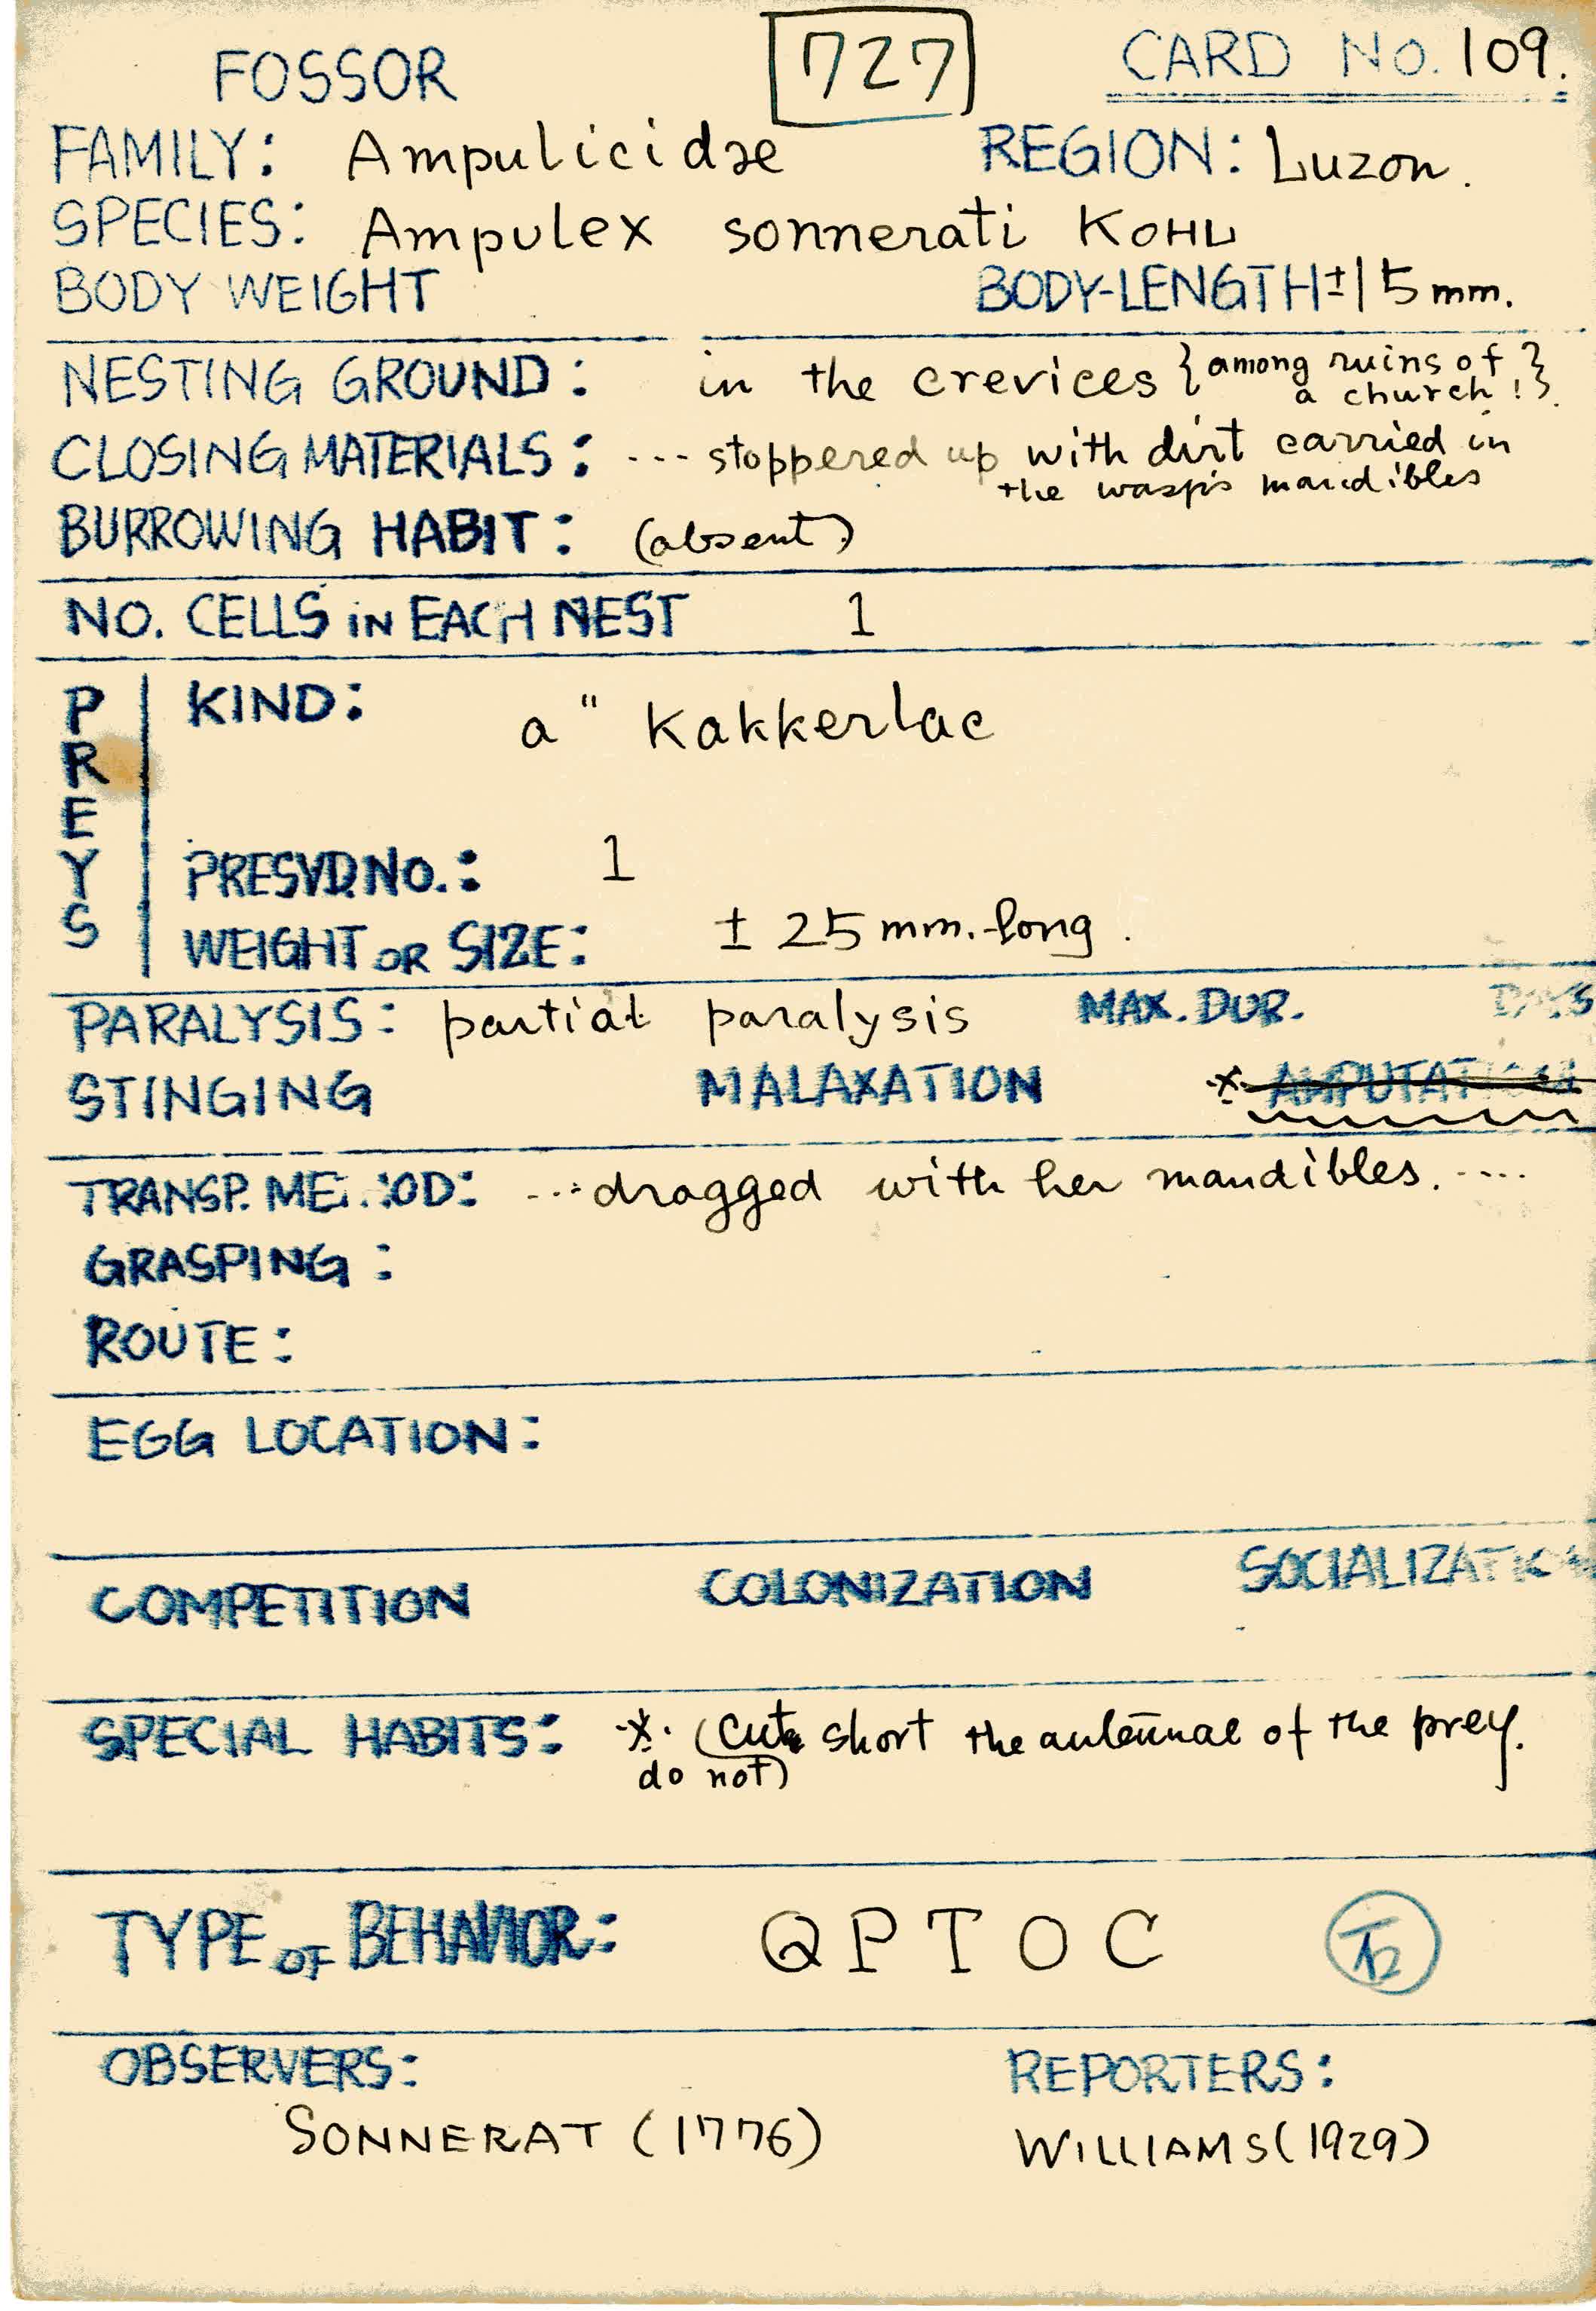 FOSSOR 727 CARD NO. 109.
FAMILY: Ampulicidae REGION: Luzon.
SPECIES: Ampulex sonnerati KOHL
BODY WEIGHT BODY-LENGTH ± 15 mm.
NESTING GROUND: in the crevices {among ruins of
a church!}.
CLOSING MATERIALS: --- stoppered up with dirt carried in
the wasp's mandibles
BURROWING HABIT: (absent)
NO. CELLS iN EACH NEST 1
PREYS
KIND: a " Kakkerlac
PRESVD.NO.: 1
WEIGHT OR SIZE: ± 25 mm. long.
PARALYSIS: partial paralysis MAX. DUR. DAYS
STINGING MALAXATION * AMPUTATION
TRANSP. ME..OD: ...dragged with her mandibles. ....
GRASPING:
ROUTE:
EGG LOCATION:
COMPETITION COLONIZATION SOCIALIZATION
SPECIAL HABITS: * (cut short the antennae of the prey.
do not)
TYPE OF BEHAVIOR: QPTOC T2
OBSERVERS: REPORTERS:
SONNERAT (1776) WILLIAMS (1929)